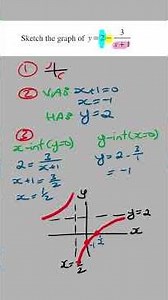 Sketch the graph of y = 2 − 3/(x + 1)
①
② VAS x+1=0
x=-1
HAS y=2
③
x-int(y=0) y-int(x=0)
2 = 3/(x+1) y=2-3/1
x+1=3/2 =-1
x=1/2
y
y=2
-1 1/2 x